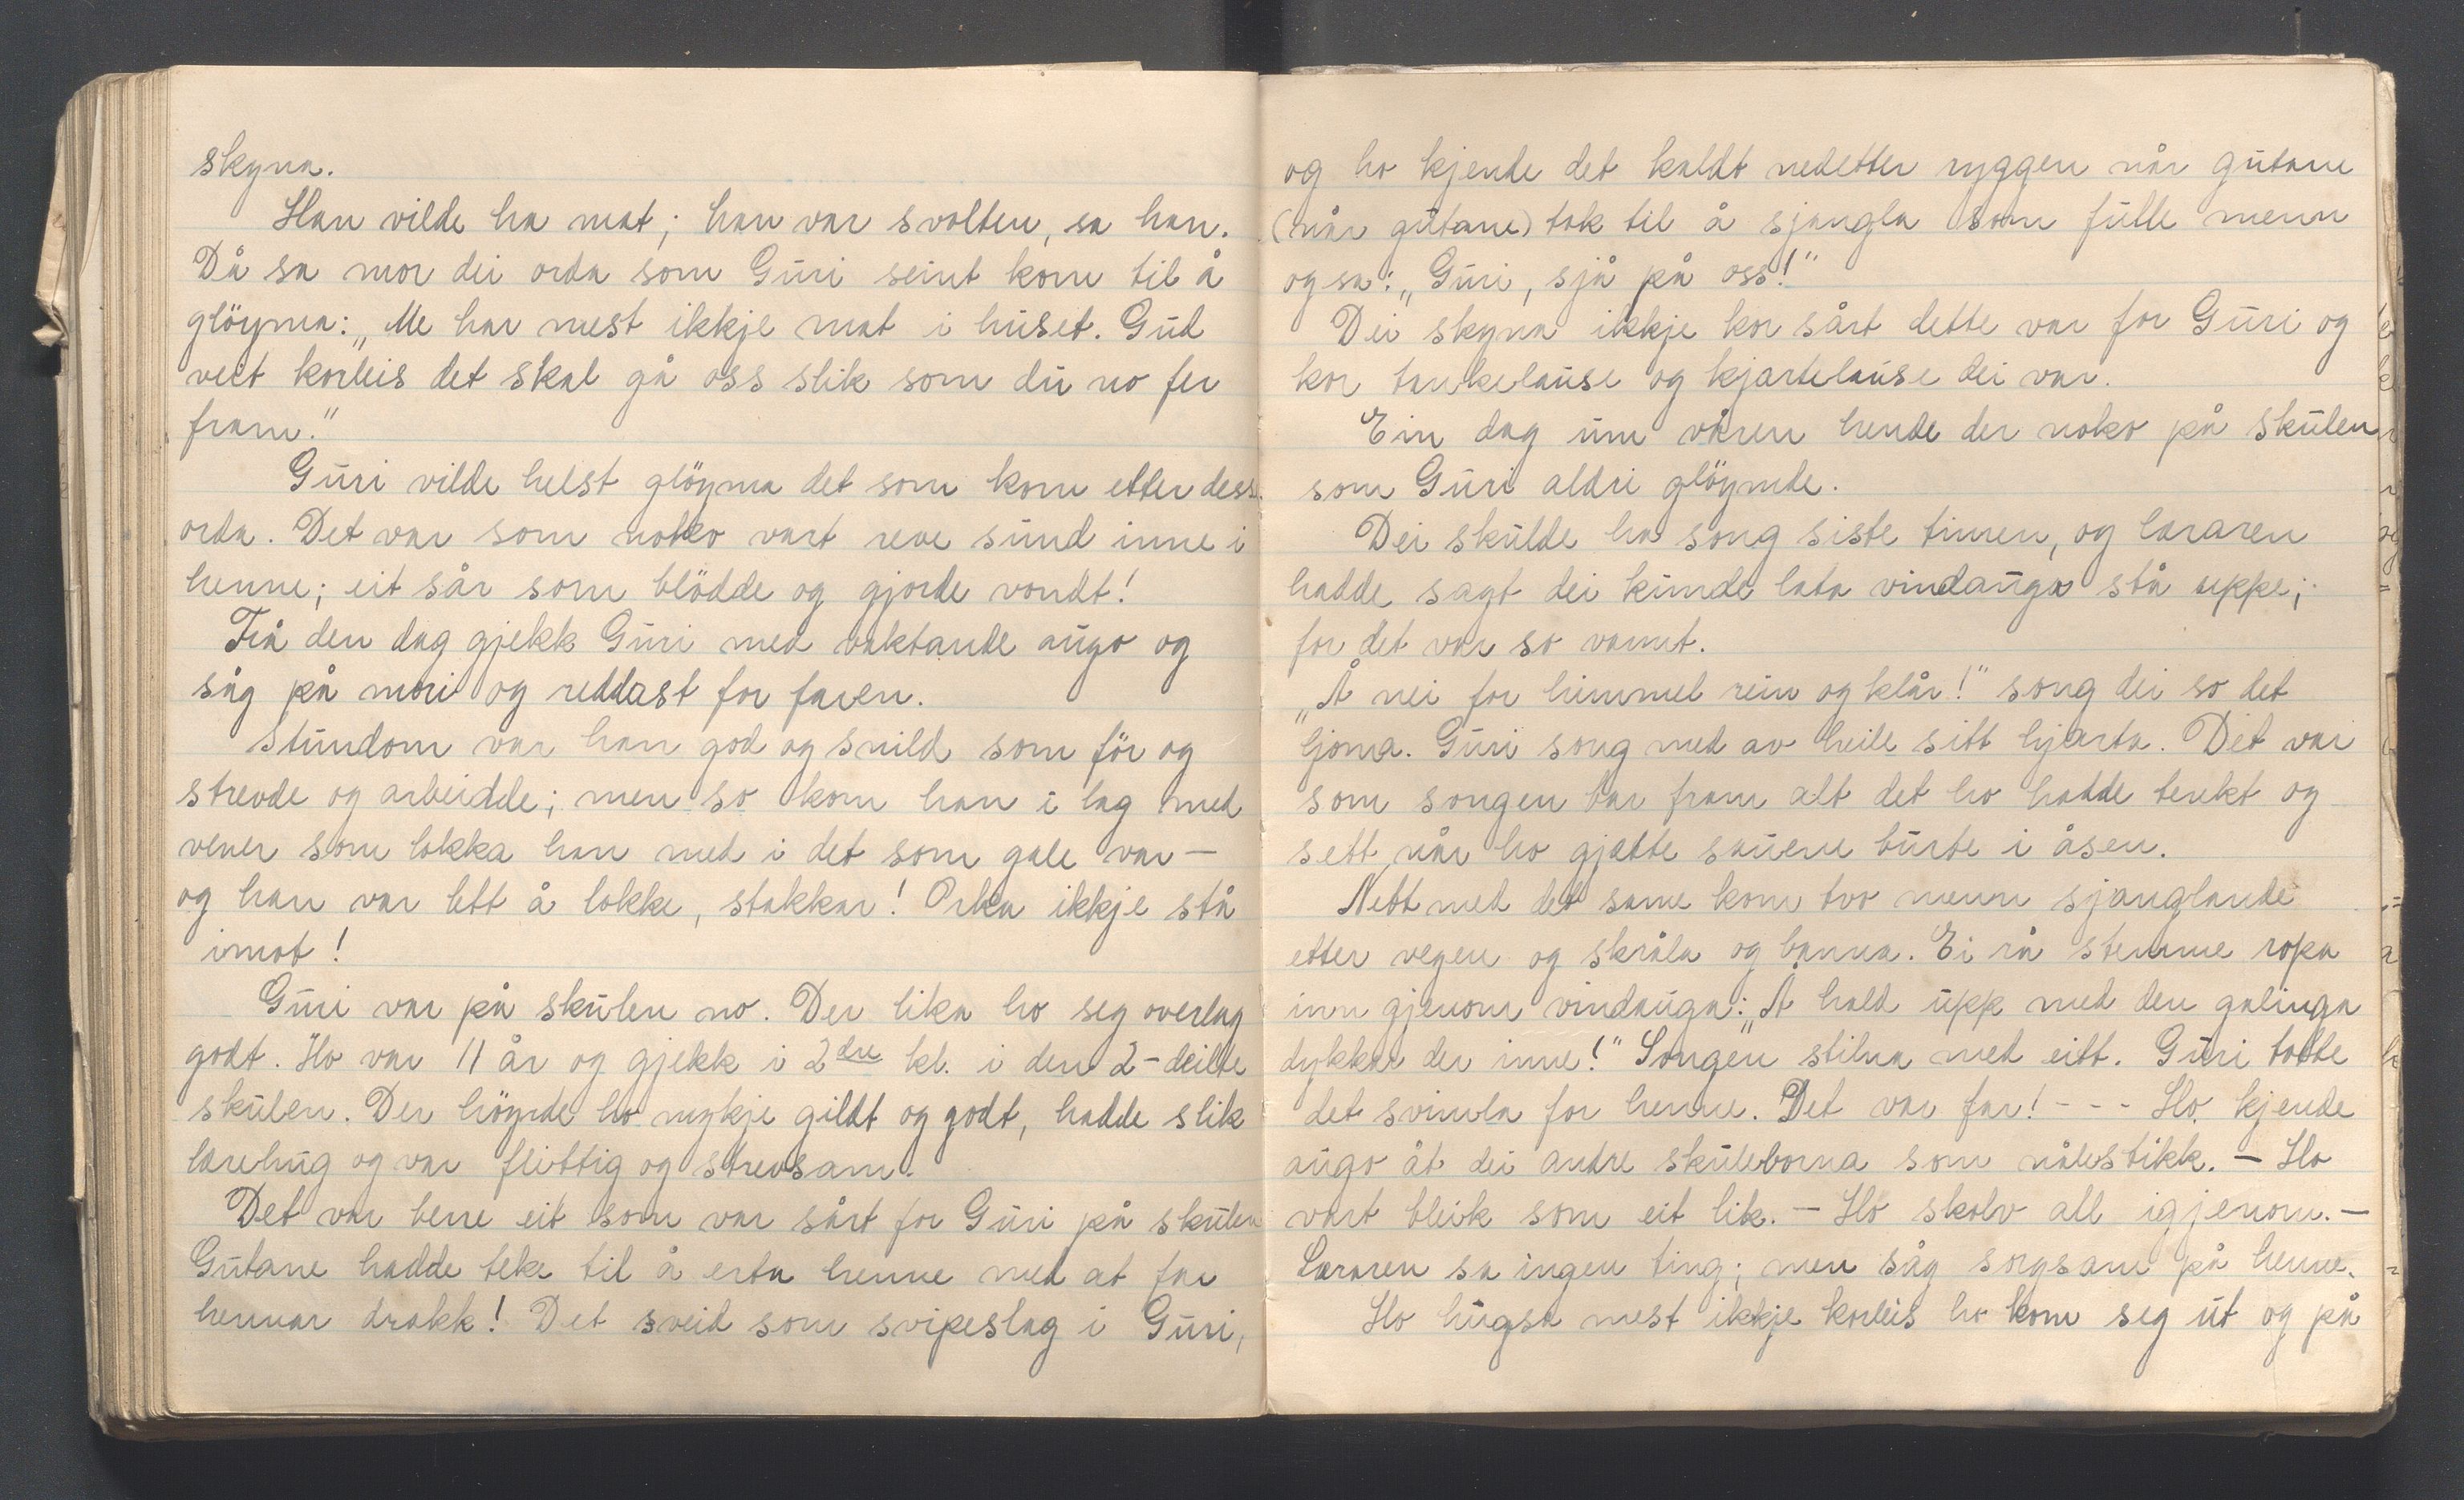 skyna.
Han vilde ha mat; han var svolten, sa han.
Då sa mor dei orda som Guri seint kom til å
glöyma: „Me har mest ikkje mat i huset. Gud
veit korleis det skal gå oss slik som du no fer
fram."
Guri vilde helst glöyma det som kom etter dess
orda. Det var som noko vart reve sund inne i
henne; eit sår som blödde og gjorde vondt!
Frå den dag gjekk Guri med vaktande augo og
såg på mori og reddast for faren.
Stundom var han god og snild som för og
strevde og arbeidde; men so kom han i lag med
vener som lokka han med i det som gale var —
og han var lett å lokke, stakkar! Orka ikkje stå
imot!
Guri var på skulen no. Der lika ho seg overlag
godt. Ho var 11 år og gjekk i 2dre kl. i den 2-deilte
skulen. Der höyrde ho mykje gildt og godt, hadde slik
lærehug og var flittig og strevsam.
Det var berre eit som var sårt for Guri på skulen
Gutane hadde teke til å erta henne med at far
hennar drakk! Det sveid som svipeslag i Guri,
og ho kjende det kaldt nedetter ryggen når gutane
(når gutane) tok til å sjangla som fulle menn
og sa: „Guri, sjå på oss!"
Dei skyna ikkje kor sårt dette var for Guri og
kor tankelause og kjartelause dei var.
Ein dag um våren hende der noko på skulen
som Guri aldri glöymde.
Dei skulde ha song siste timen, og læraren
hadde sagt dei kunde lata vindauga stå uppe;
for det var so varmt.
„Å nei for himmel rein og klår!" song dei so det
ljoma. Guri song med av heile sitt hjarta. Det var
som songen bar fram alt det ho hadde tenkt og
sett når ho gjætte sauene burte i åsen.
Nett med det same kom tvo menn sjanglande
etter vegen og skråla og banna. Ei rå stemme ropa
inn gjenom vindauga: „Å hald upp med den galinga
dykkar der inne!" Songen stilna med eitt. Guri totte
det svimla for henne. Det var far! - - - Ho kjende
augo åt dei andre skuleborna som nålestikk. — Ho
vart bleik som eit lik. — Ho skalv all igjenom. —
Læraren sa ingen ting; men såg sorgsam på henne.
Ho hugsa mest ikkje korleis ho kom seg ut og på